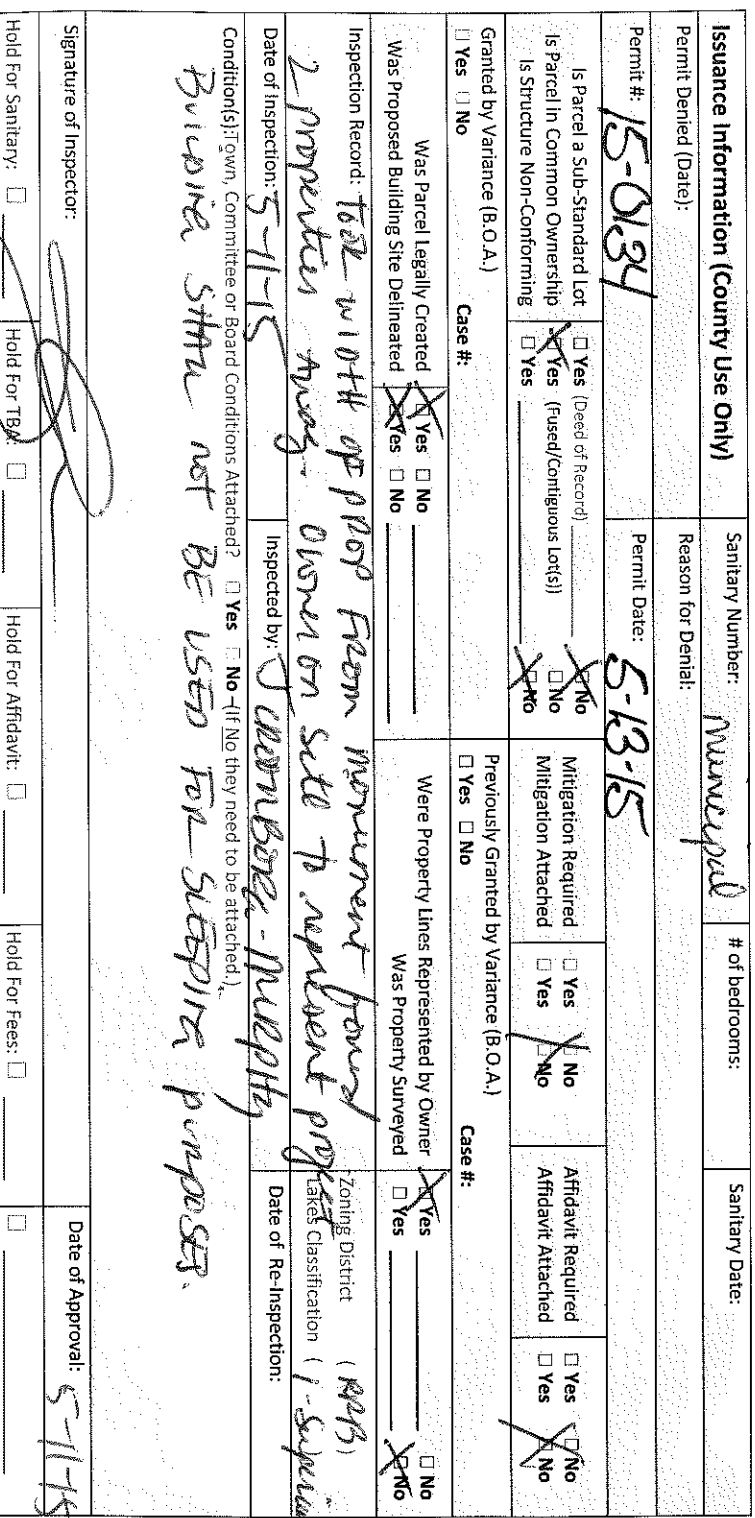 Issuance Information (County Use Only)
Sanitary Number: Municipal
# of bedrooms:
Sanitary Date:
Permit Denied (Date):
Reason for Denial:
Permit #: 15-0134
Permit Date: 5-13-15
Is Parcel a Sub-Standard Lot ☐ Yes (Deed of Record) ☒ No
Is Parcel in Common Ownership ☒ Yes (Fused/Contiguous Lot(s)) ☐ No
Is Structure Non-Conforming ☐ Yes ☒ No
Mitigation Required ☐ Yes ☒ No
Mitigation Attached ☐ Yes ☒ No
Affidavit Required ☐ Yes ☒ No
Affidavit Attached ☐ Yes ☒ No
Granted by Variance (B.O.A.)
☐ Yes ☐ No Case #:
Previously Granted by Variance (B.O.A.)
☐ Yes ☐ No Case #:
Was Parcel Legally Created ☒ Yes ☐ No
Was Proposed Building Site Delineated ☒ Yes ☐ No
Were Property Lines Represented by Owner ☒ Yes ☐ No
Was Property Surveyed ☐ Yes ☒ No
Inspection Record: Took width of prop From monument found
2 properties away. Owner on site to represent project
Zoning District (RRB)
Lakes Classification (1-Superior
Date of Inspection: 5-11-15
Inspected by: J
Murphy
Date of Re-Inspection:
Condition(s): Town, Committee or Board Conditions Attached? ☐ Yes ☐ No – (If No they need to be attached.)
Building SHALL not BE USED FOR SLEEPING purposes.
Signature of Inspector:
Date of Approval: 5-11-15
Hold For Sanitary: ☐
Hold For TBA: ☐
Hold For Affidavit: ☐
Hold For Fees: ☐
☐